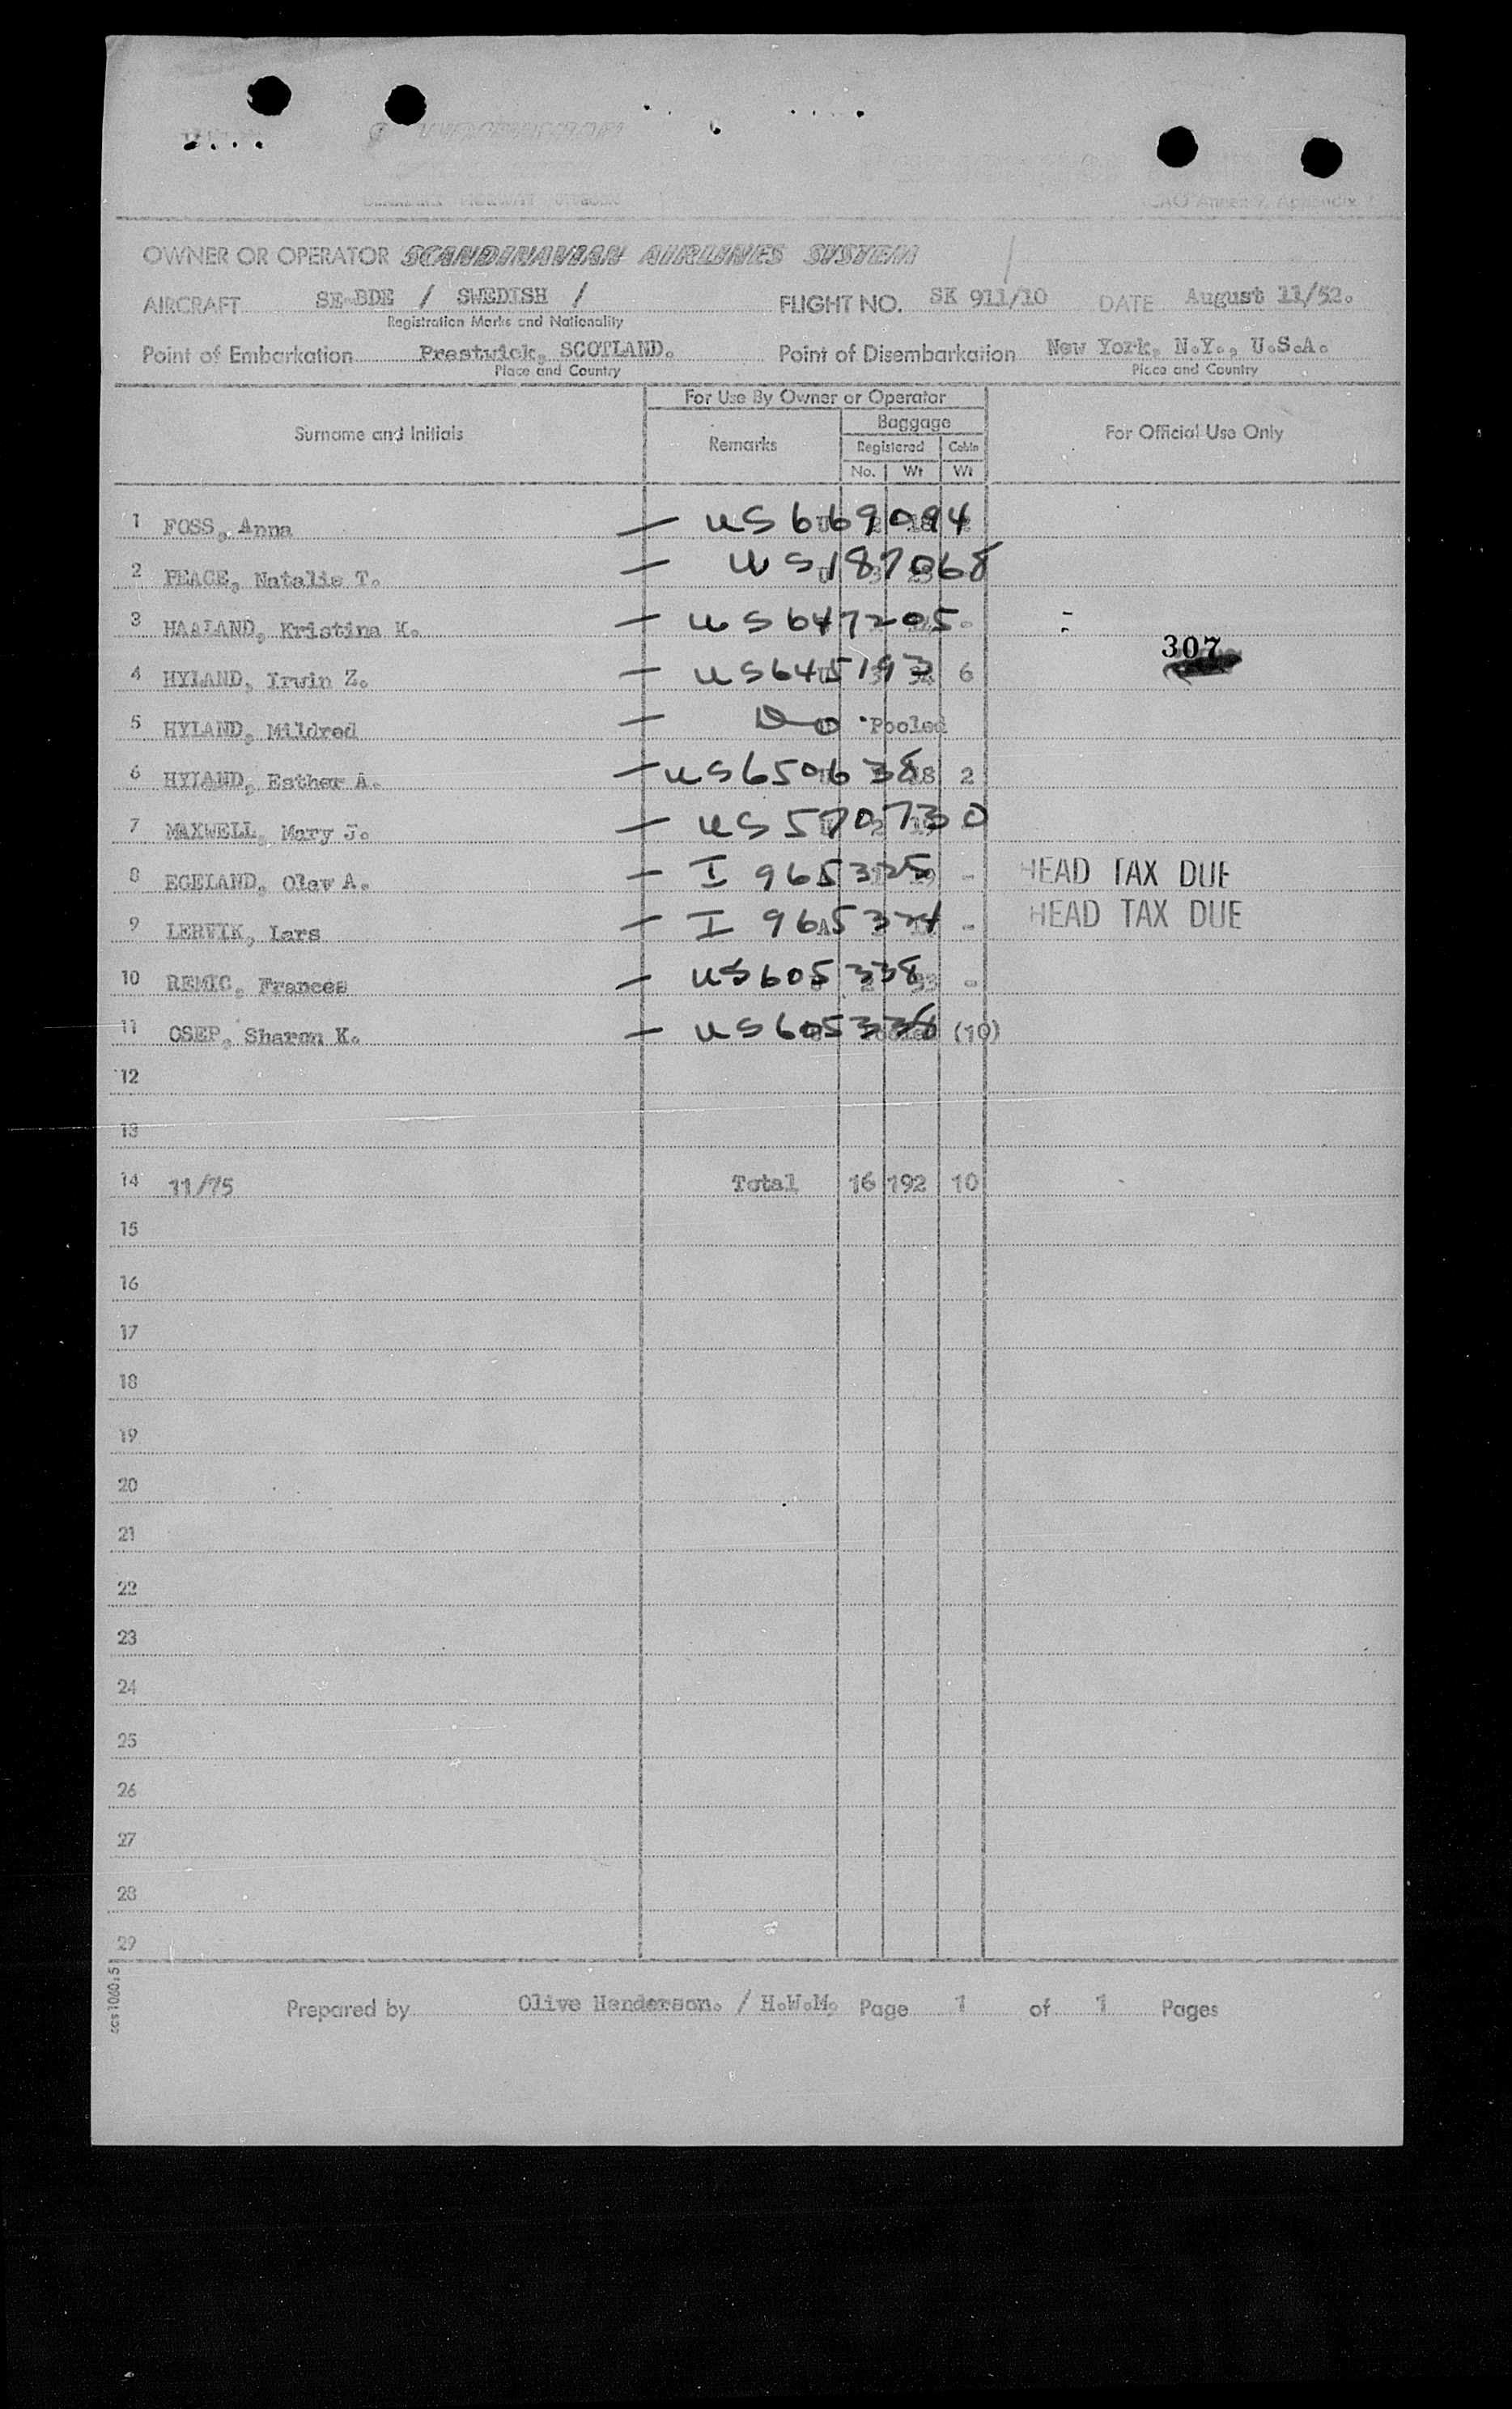 OWNER OR OPERATOR SCANDINAVIAN AIRLINES SYSTEM
AIRCRAFT SE-BDE / SWEDISH / FLIGHT NO. SK 911/10 DATE August 11/52.
Registration Marks and Nationality
Point of Embarkation Prestwick, SCOTLAND. Point of Disembarkation New York, N.Y., U.S.A.
Place and Country Place and Country
For Use By Owner or Operator
Surname and Initials Remarks Baggage For Official Use Only
Registered Cabin
No. Wt Wt
1 FOSS, Anna — US 669094
2 PEACE, Natalie T. — US 187068
3 HAALAND, Kristina K. — US 647205 -
307
4 HYLAND, Irwin Z. — US 645192 6
5 HYLAND, Mildred — Do Pooled
6 HYLAND, Esther A. — US 650638 18 2
7 MAXWELL, Mary J. — US 570730
8 EGELAND, Olav A. — I 965325 - HEAD TAX DUE
9 LERVIK, Lars — I 965324 - HEAD TAX DUE
10 REMIC, Frances — US 605338 -
11 OSEP, Sharon K. — US 605338 (10)
12
13
14 11/75 Total 16 192 10
15
16
17
18
19
20
21
22
23
24
25
26
27
28
29
Prepared by Olive Henderson. / H.W.M. Page 1 of 1 Pages